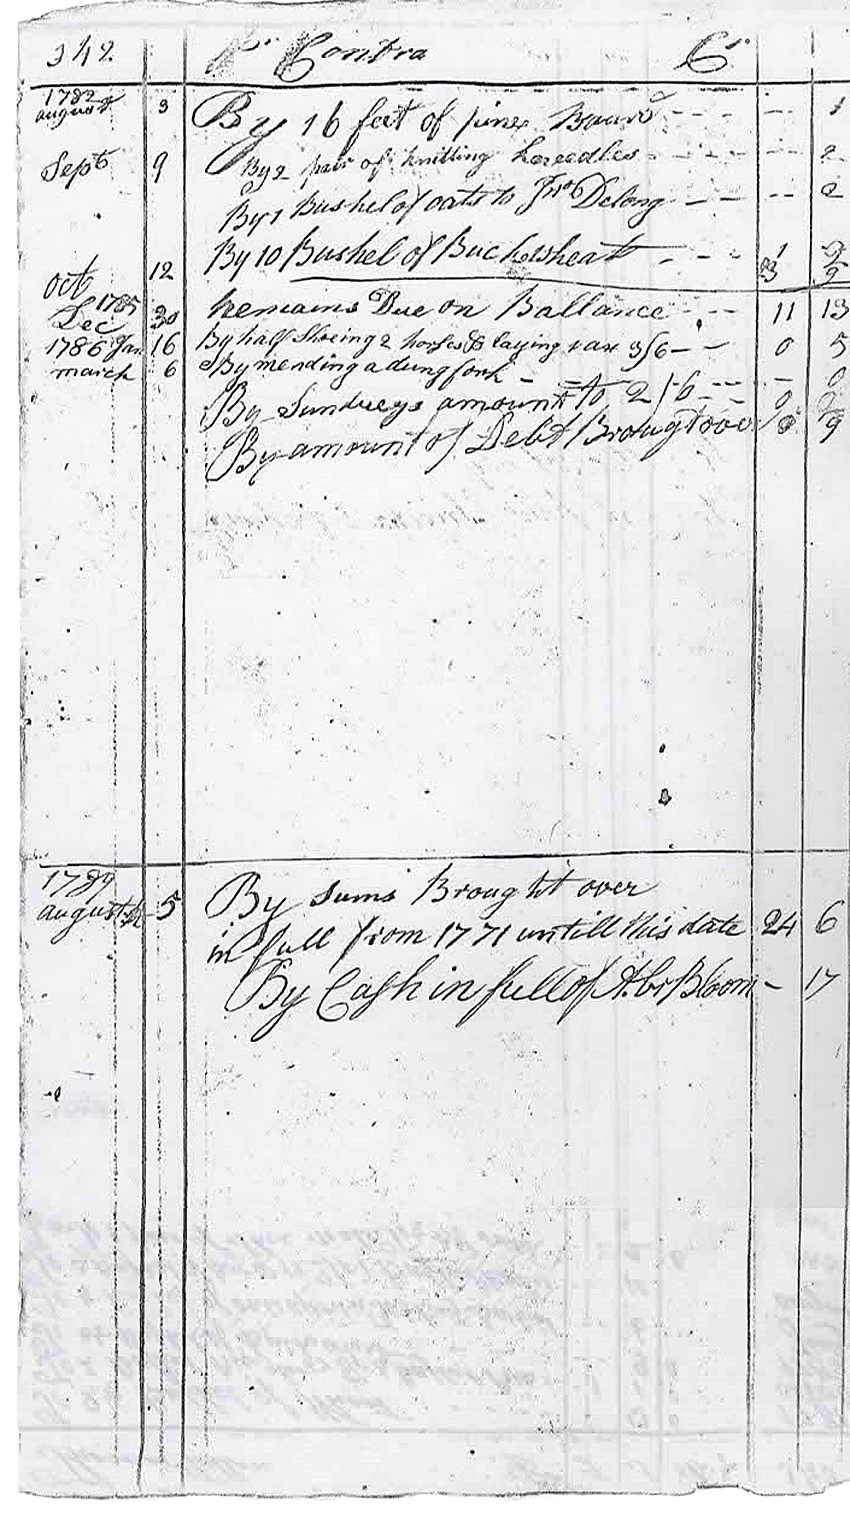 342 Pr Contra Cr
1782 august 3 By 16 feet of pine Board 1
Sept 9 By 2 pair of knitting kneedles 2
By 1 Bushel of oats to Jno Delong 2
oct 12 By 10 Bushel of Buckwheat 1
3 9
1785 Dec 30 Remains Due on Ballance 11 13
1786 Jan 16 By half Shoeing 2 horses & laying 1 ax 3/6 0 5
march 6 By mending a dung fork 0
By Sundreys amount to 2/6 0
By amount of Debt Brougt over 0 9
1789
august 5 By sums Brought over
in full from 1771 untill this date 24 6
By Cash in full of Abr Bloom 17